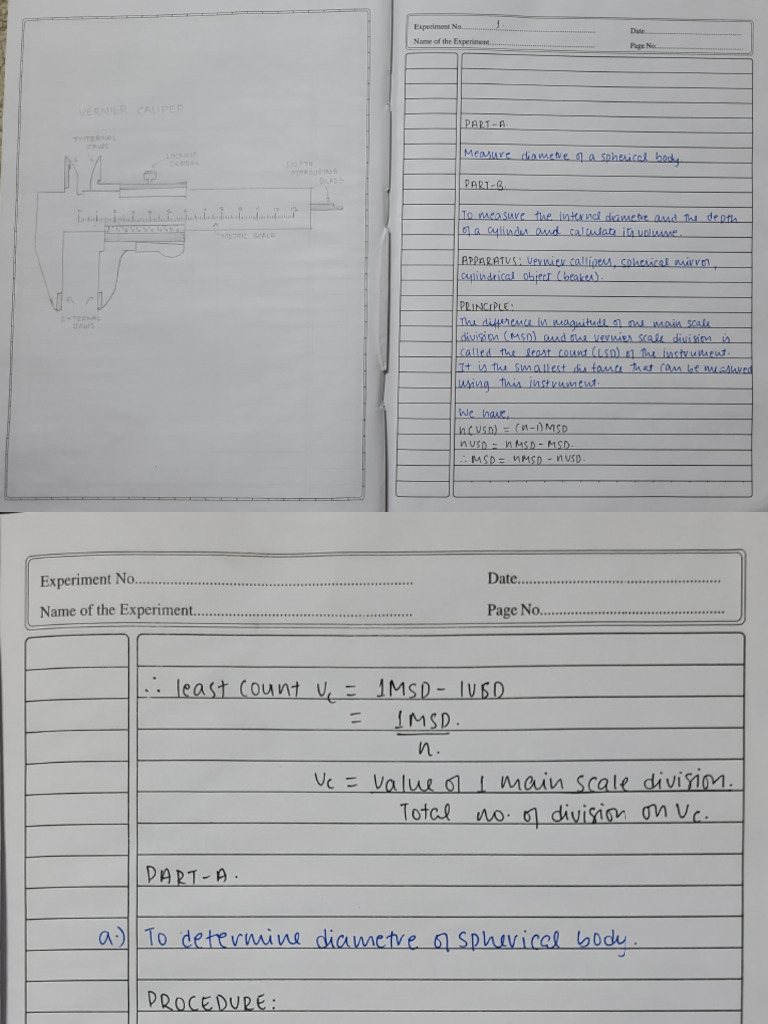 VERNIER CALIPER
INTERNAL
JAWS
LOCKING
SCREW
DEPTH
MEASURING
BLADE
METRIC SCALE
EXTERNAL
JAWS
Experiment No. 1.
Date
Name of the Experiment
Page No.
PART-A.
Measure diametre of a spherical body.
PART-B.
To measure the internal diametre and the depth
of a cylinder and calculate its volume.
APPARATUS: Vernier callipers, spherical mirror,
cylindrical object (beaker).
PRINCIPLE:
The difference in magnitude of one main scale
division (MSD) and one vernier scale division is
called the least count (LSD) of the instrument.
It is the smallest distance that can be measured
using this instrument.
We have,
n(VSD) = (n-1)MSD
nVSD = nMSD - MSD.
∴ MSD = nMSD - nVSD.
Experiment No.
Date
Name of the Experiment
Page No.
∴ least count Vc = 1MSD - 1VSD
= 1MSD.
n.
Vc = value of 1 main scale division.
Total no. of division on Vc.
PART-A.
a.) To determine diametre of spherical body.
PROCEDURE: